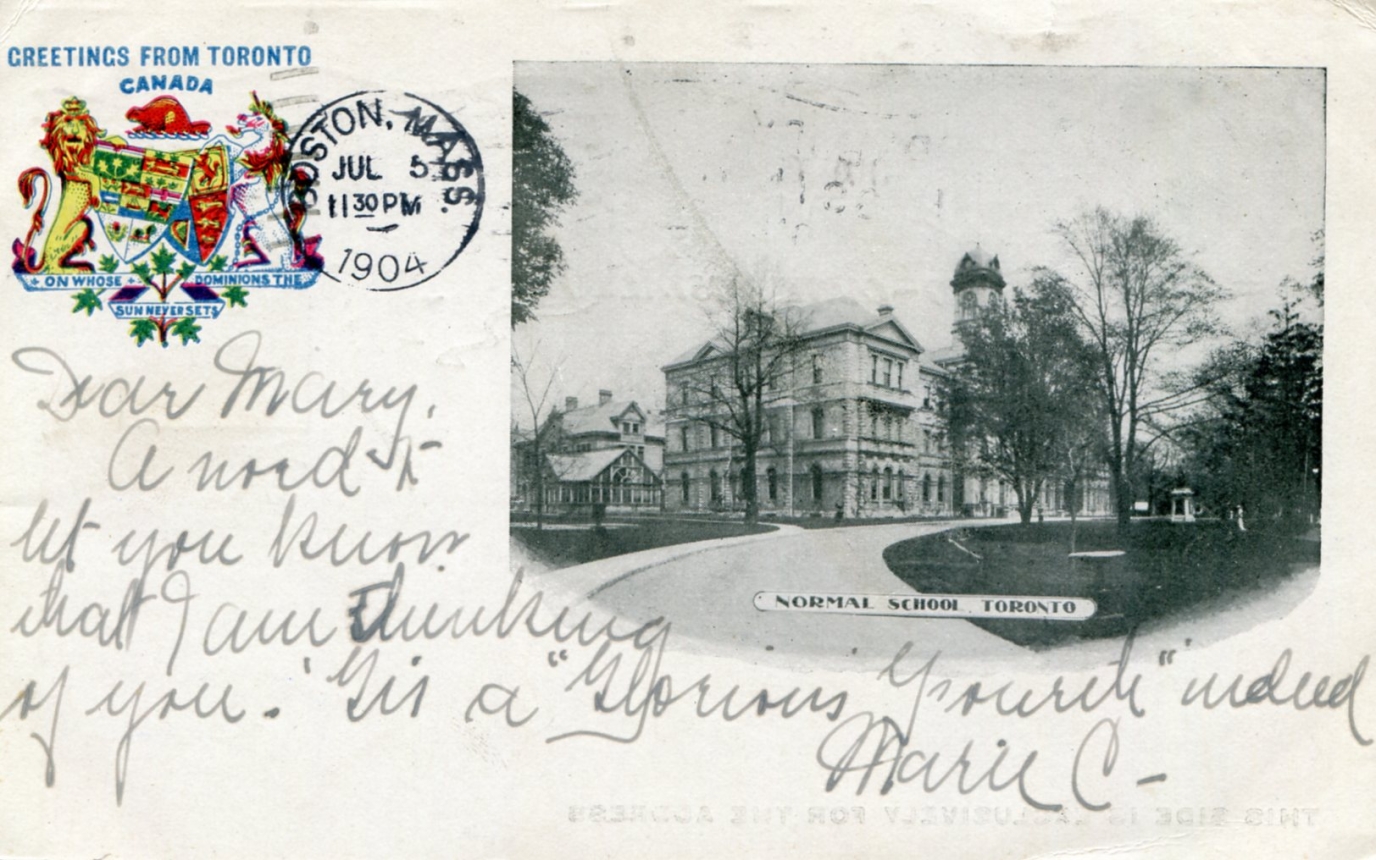 GREETINGS FROM TORONTO
CANADA
BOSTON, MASS.
JUL 5
11 30 PM
1904
ON WHOSE DOMINIONS THE
SUN NEVER SETS
NORMAL SCHOOL, TORONTO
Dear Mary,
A word to
let you know
that I am thinking
of you. 'Tis a "Glorious Fourth" indeed
Marie C-
THIS SIDE IS EXCLUSIVELY FOR THE ADDRESS